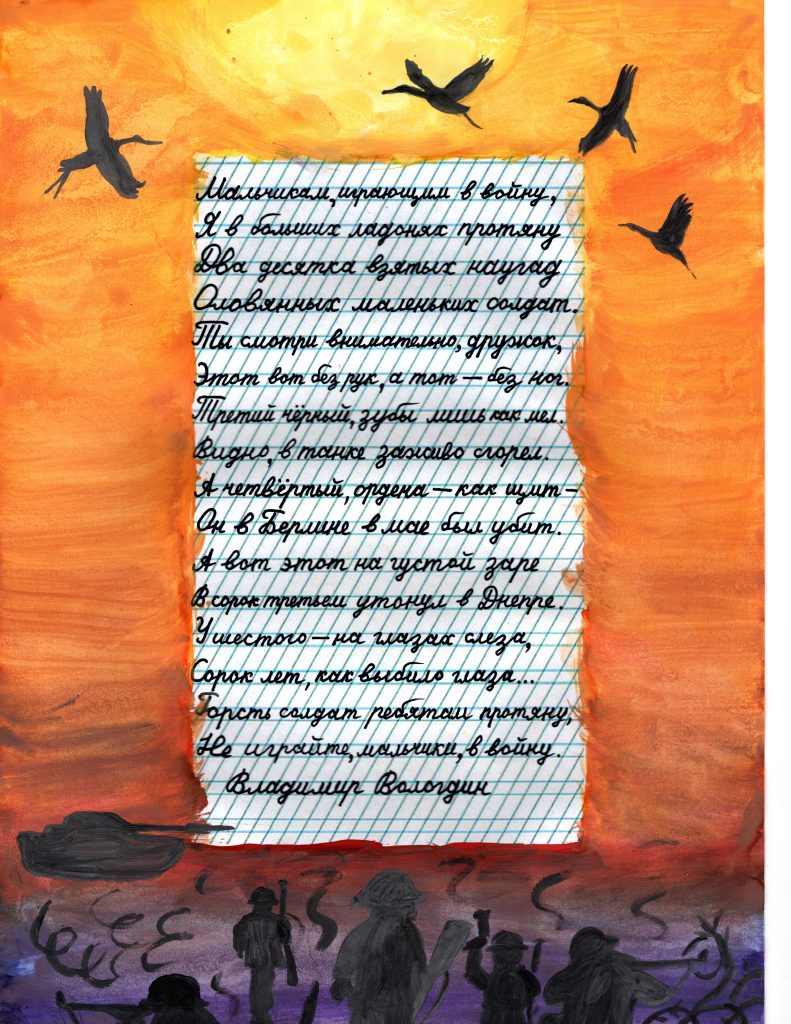 Мальчикам, играющим в войну,
Я в больших ладонях протяну
Два десятка взятых наугад
Оловянных маленьких солдат.
Ты смотри внимательно, дружок,
Этот вот без рук, а тот – без ног.
Третий чёрный, зубы лишь как мел.
Видно, в танке заживо сгорел.
А четвёртый, ордена – как щит –
Он в Берлине в мае был убит.
А вот этот на густой заре
В сорок третьем утонул в Днепре.
У шестого – на глазах слеза,
Сорок лет, как выбило глаза...
Горсть солдат ребятам протяну,
Не играйте, мальчики, в войну.
Владимир Вологдин